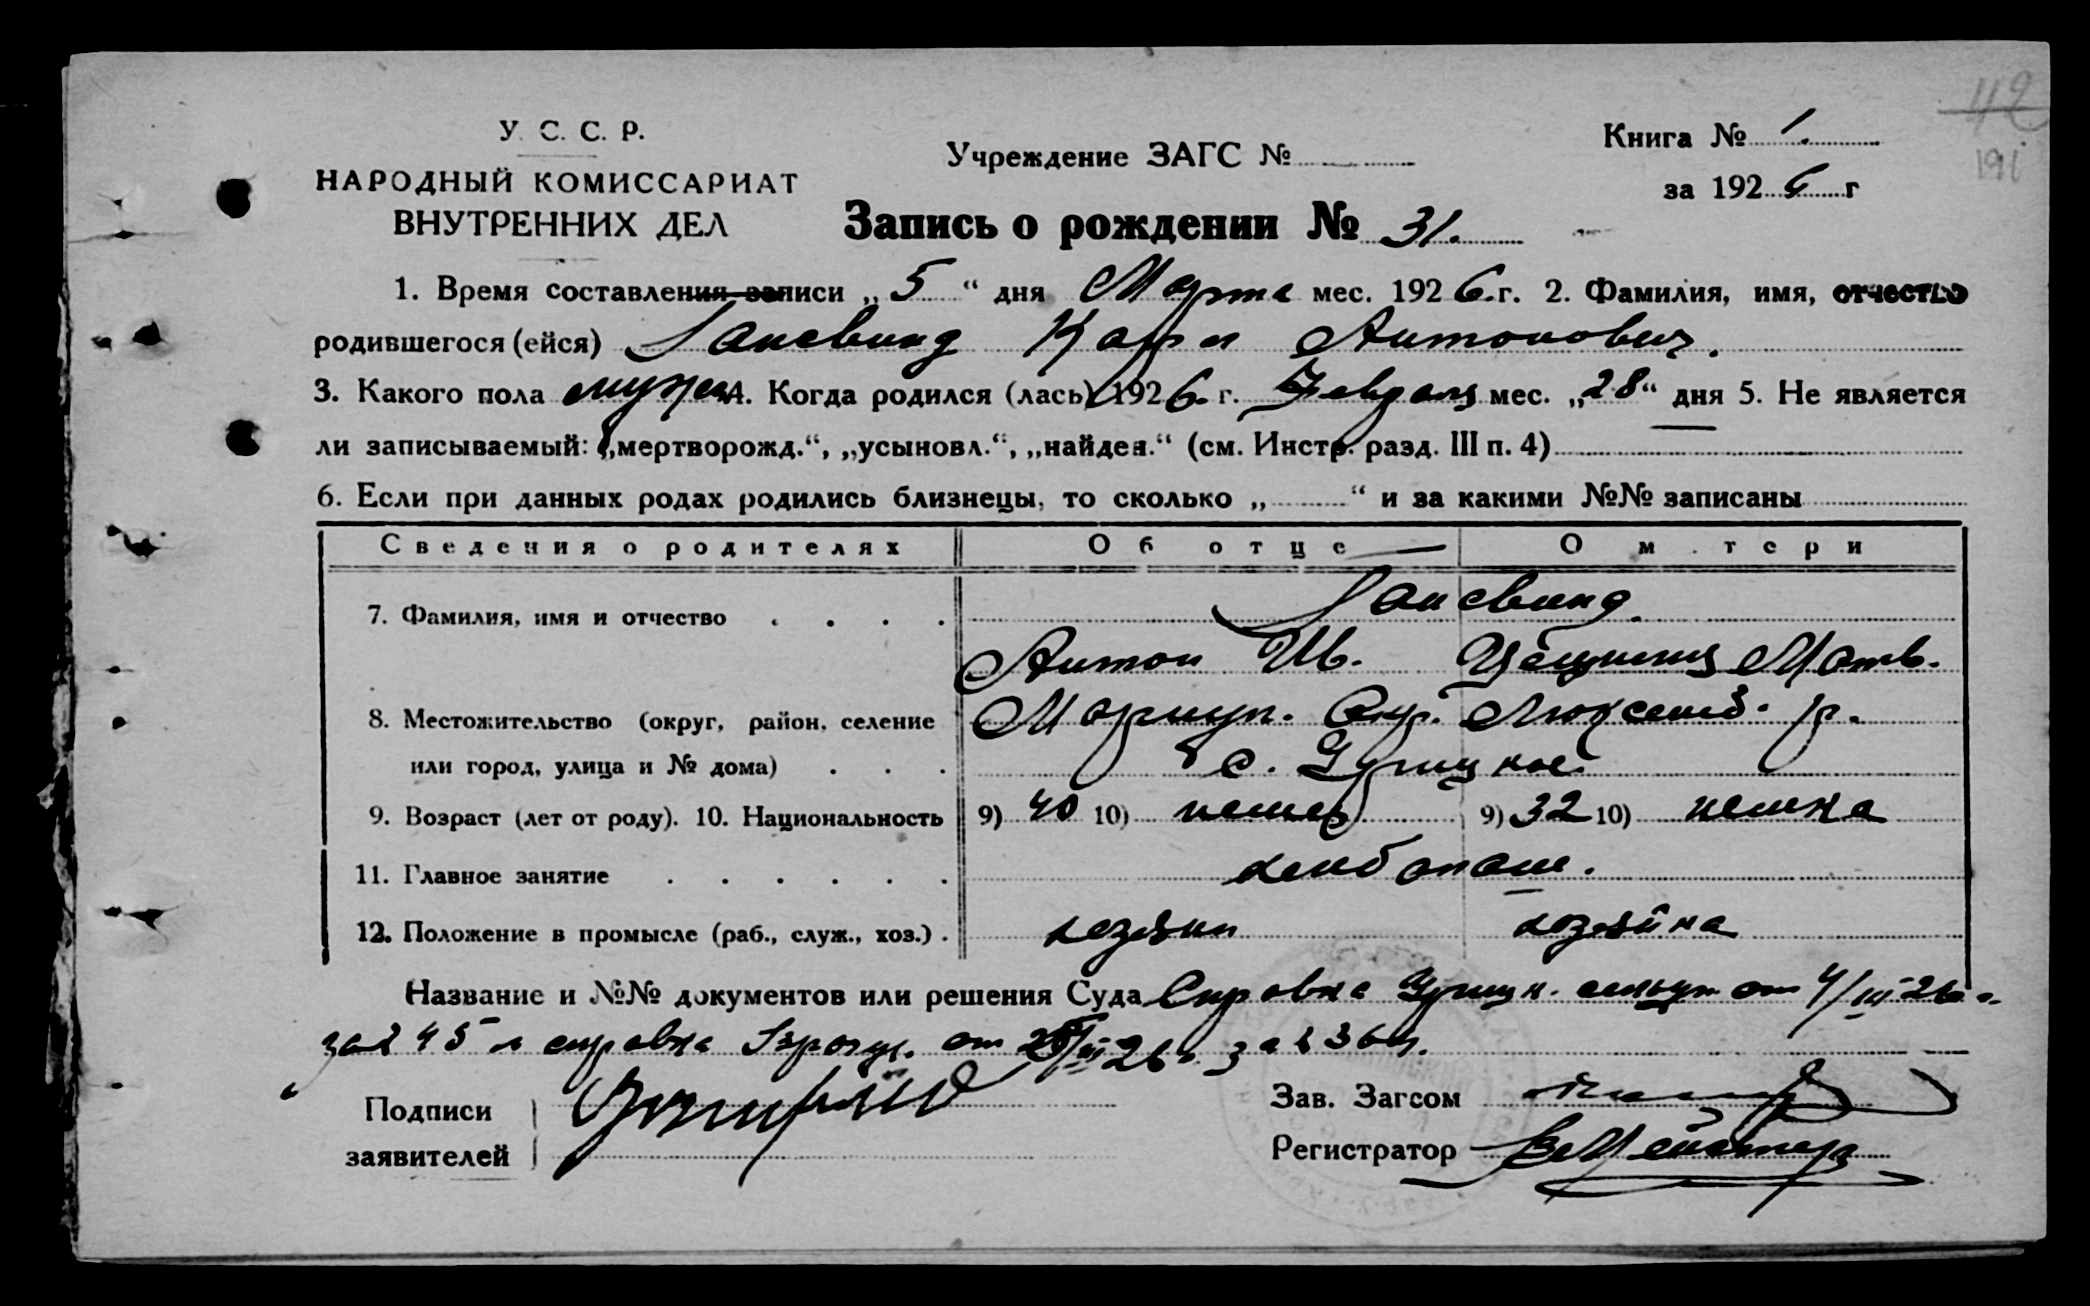 У. С. С. Р.
НАРОДНЫЙ КОМИССАРИАТ
ВНУТРЕННИХ ДЕЛ
Учреждение ЗАГС №
Книга № 1.
за 1926 г
112
191
Запись о рождении № 31.
1. Время составления записи „5“ дня Марта мес. 1926. г. 2. Фамилия, имя, отчество
родившегося (ейся) Карл Антонович.
3. Какого пола муж. 4. Когда родился (лась) 1926. г. Февраля мес. „28“ дня 5. Не является
ли записываемый: „мертворожд.“, „усыновл.“, „найден.“ (см. Инстр. разд. III п. 4)
6. Если при данных родах родились близнецы, то сколько „ “ и за какими №№ записаны
Сведения о родителях Об отце О матери
7. Фамилия, имя и отчество
Антон Ив. Матв.
8. Местожительство (округ, район, селение Мариуп. Окр. Люксемб. р.
или город, улица и № дома) с. Урицкое
9. Возраст (лет от роду). 10. Национальность 9) 40 10) немец 9) 32 10) немка
11. Главное занятие хлебопаш.
12. Положение в промысле (раб., служ., хоз.) хозяин хозяйка
Название и №№ документов или решения Суда Справка Урицк. от 4/III-26 г.
за № 45 и справка от 26 г. за №
Подписи
заявителей
Зав. Загсом
Регистратор